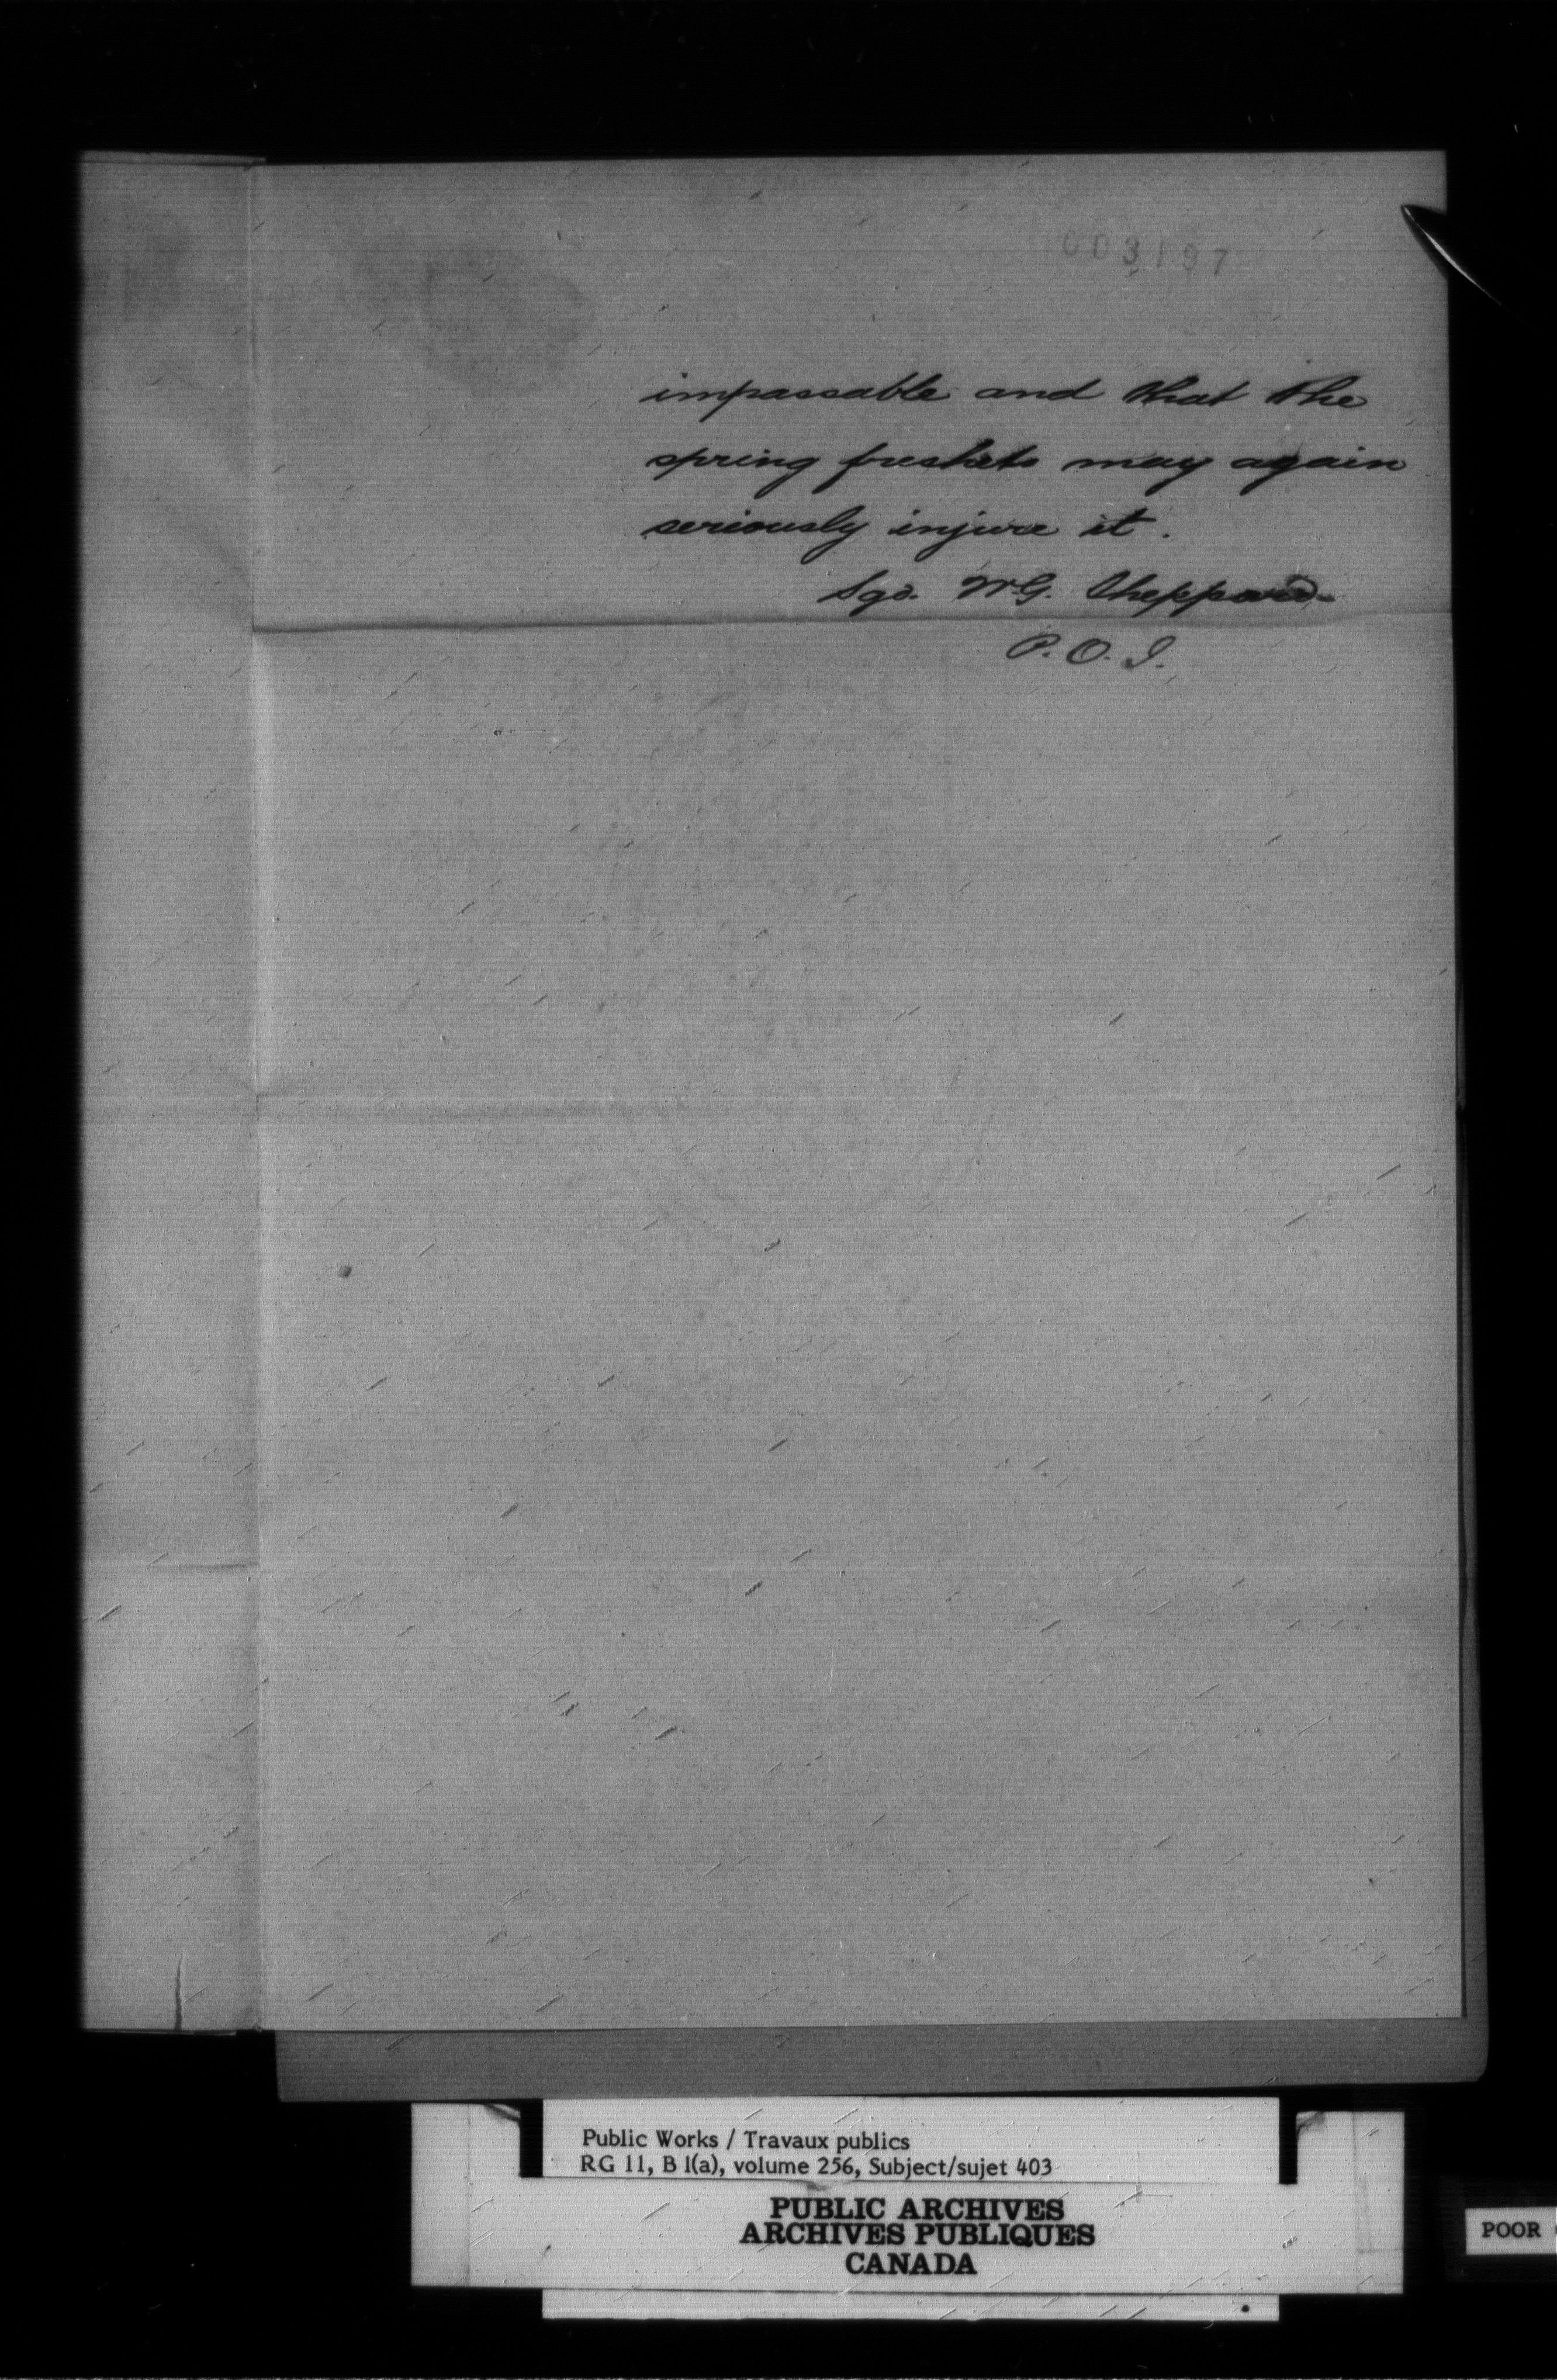 003197
impassable and that the
spring freshets may again
seriously injure it.
Sgd. W.G. Sheppard
P.O.I.
Public Works / Travaux publics
RG 11, B 1(a), volume 256, Subject/sujet 403
PUBLIC ARCHIVES
ARCHIVES PUBLIQUES
CANADA
POOR